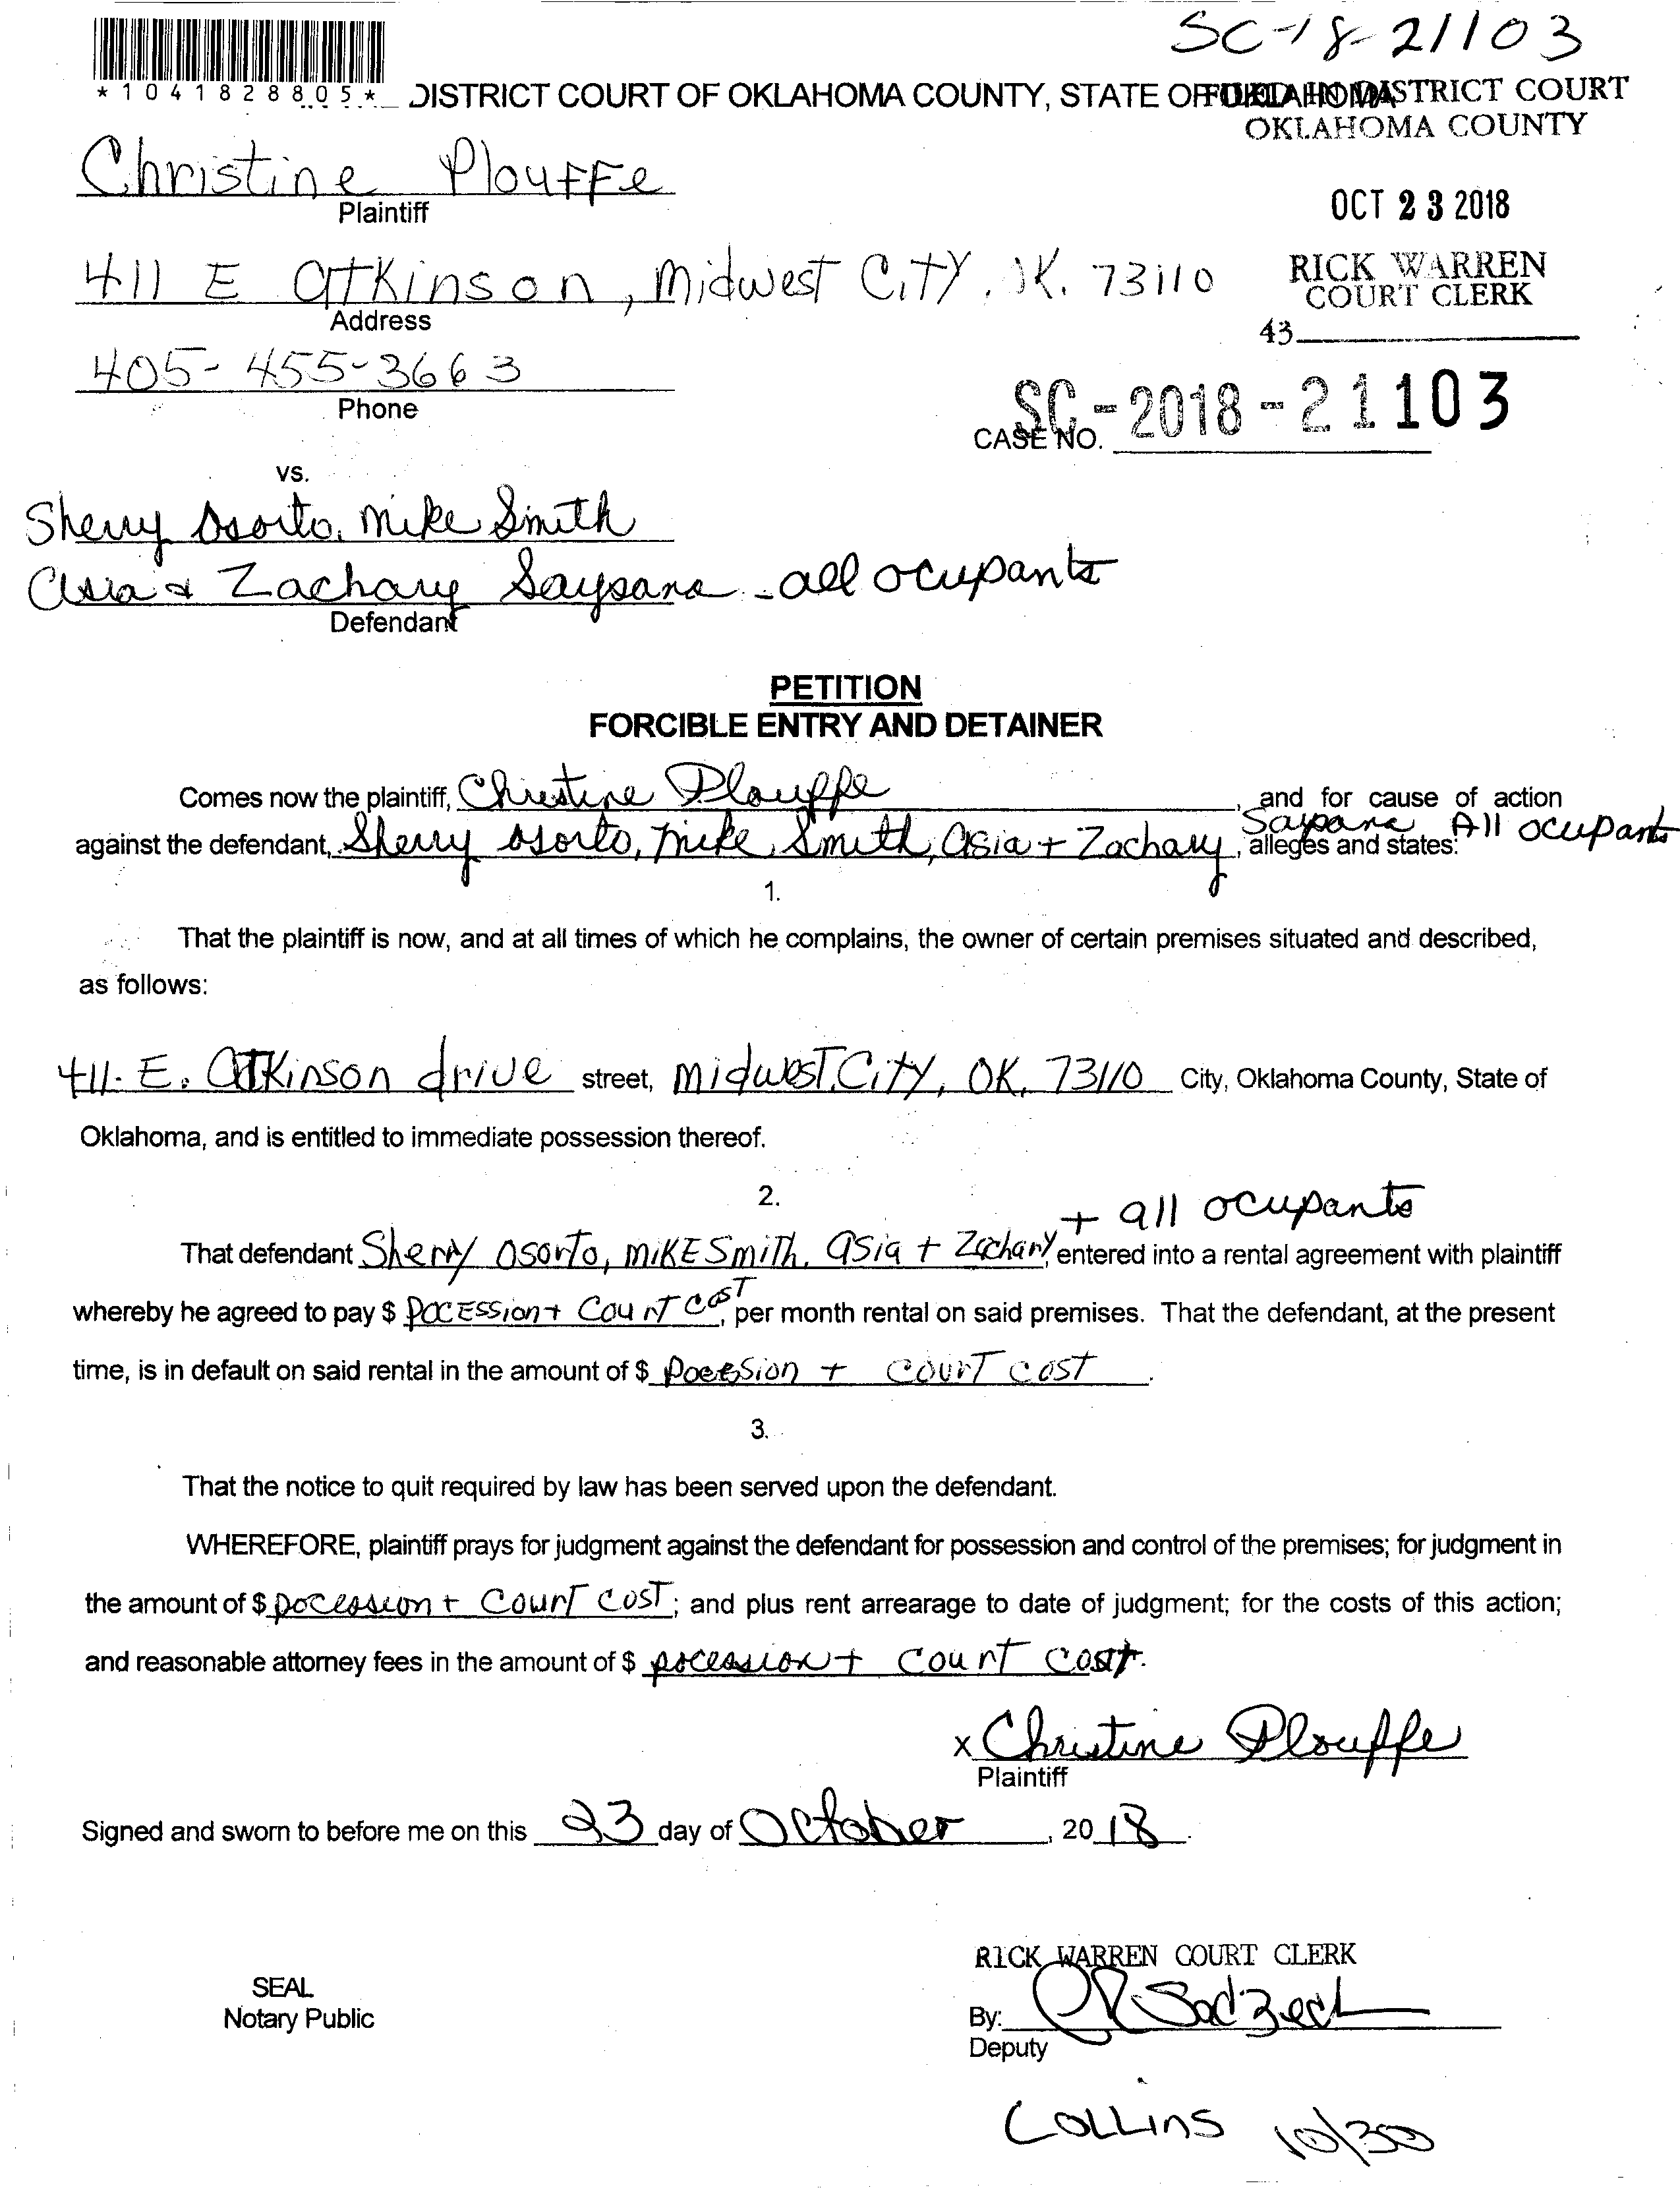 SC-18-21103
*1041828805*
DISTRICT COURT OF OKLAHOMA COUNTY, STATE OF OKLAHOMA
FILED IN DISTRICT COURT
OKLAHOMA COUNTY
Christine Plouffe
Plaintiff
OCT 23 2018
411 E Atkinson, Midwest City, OK. 73110
Address
RICK WARREN
COURT CLERK
43
405-455-3663
Phone
SC-2018-21103
CASE NO.
vs.
Sherry Osorto, Mike Smith
Asia & Zachary Saysana - all ocupants
Defendant
PETITION
FORCIBLE ENTRY AND DETAINER
Comes now the plaintiff, Christine Plouffe, and for cause of action
against the defendant, Sherry Osorto, Mike Smith, Asia + Zachary Saysana All ocupants, alleges and states:
1.
That the plaintiff is now, and at all times of which he complains, the owner of certain premises situated and described,
as follows:
411. E. Atkinson drive street, Midwest City, OK, 73110 City, Oklahoma County, State of
Oklahoma, and is entitled to immediate possession thereof.
2.
+ all ocupants
That defendant Sherry Osorto, Mike Smith, Asia + Zachary, entered into a rental agreement with plaintiff
whereby he agreed to pay $ Pocession + Court Cost, per month rental on said premises. That the defendant, at the present
time, is in default on said rental in the amount of $ Pocession + Court cost.
3.
That the notice to quit required by law has been served upon the defendant.
WHEREFORE, plaintiff prays for judgment against the defendant for possession and control of the premises; for judgment in
the amount of $ pocession + Court Cost; and plus rent arrearage to date of judgment; for the costs of this action;
and reasonable attorney fees in the amount of $ pocession + court cost.
x Christine Plouffe
Plaintiff
Signed and sworn to before me on this 23 day of October, 2018.
RICK WARREN COURT CLERK
SEAL
Notary Public
By:
Deputy
Collins 10/30